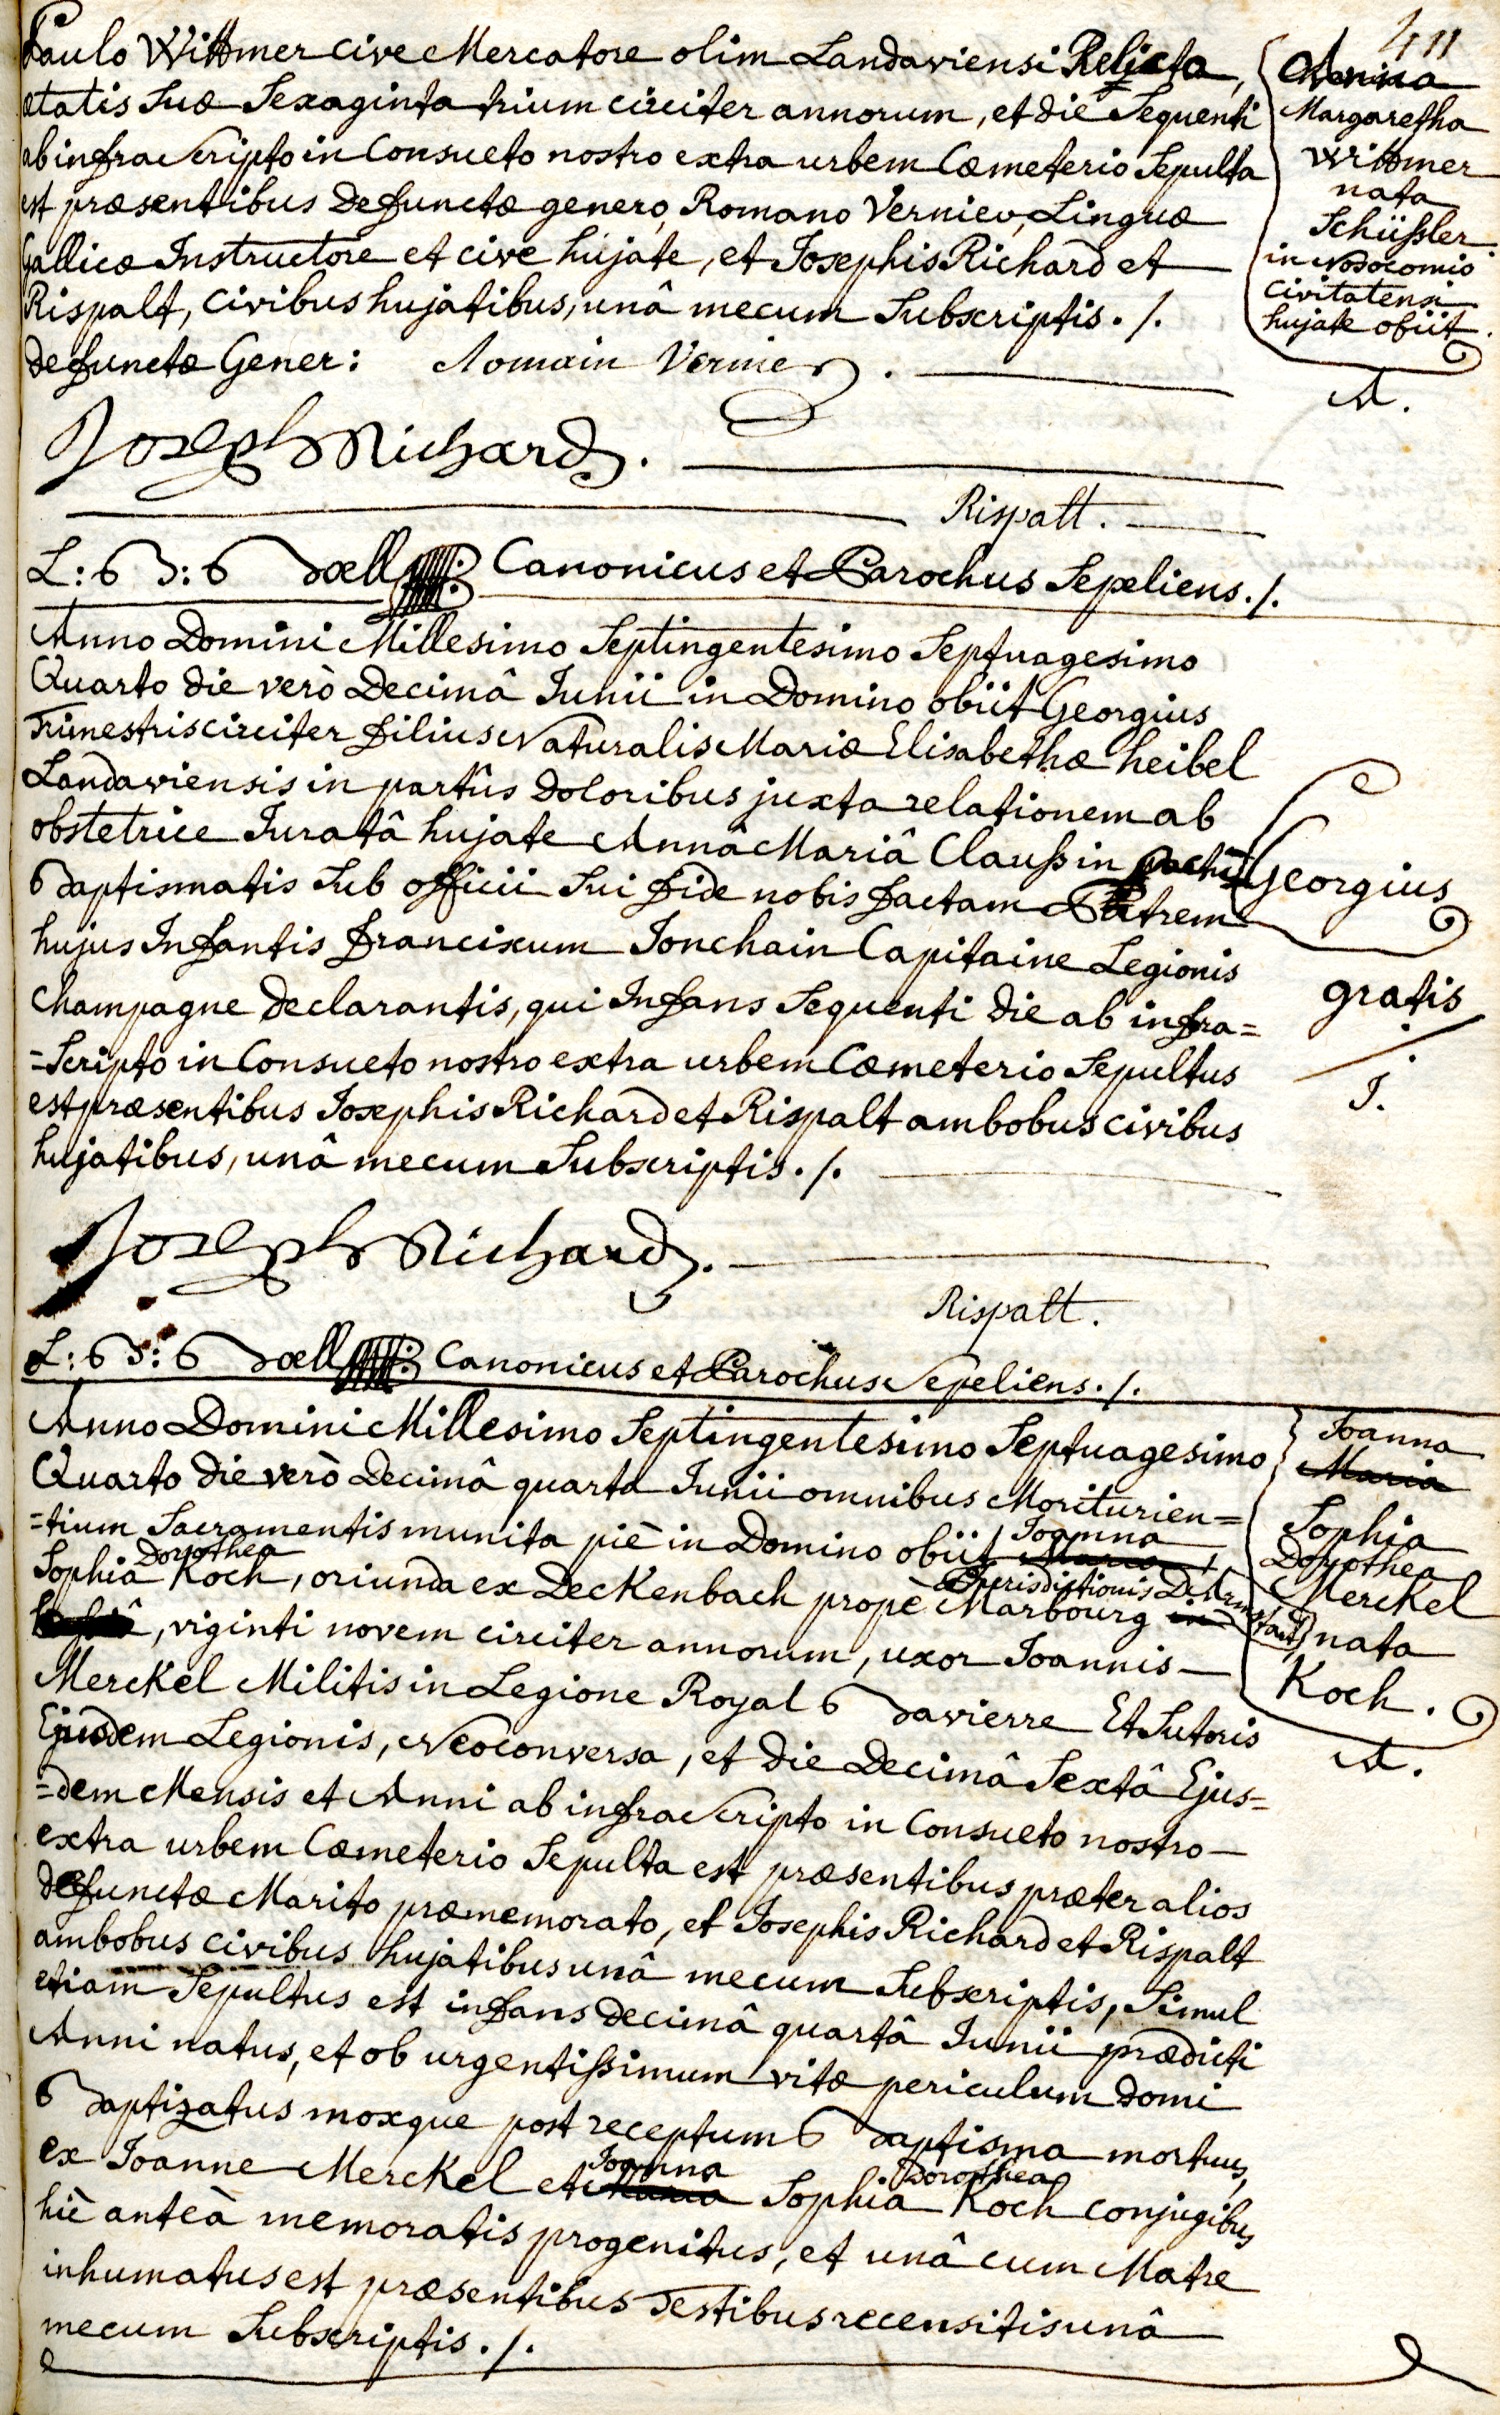 411
Paulo Wittmer cive Mercatore olim Landaviensi Relicta,
ætatis suæ Sexaginta trium circiter annorum, et die Sequenti
ab infra Scripto in Consueto nostro extra urbem Cœmeterio Sepulta
est præsentibus defunctæ genero, Romano Vernier, Linguæ
Gallicæ Instructore et cive hujate, et Josephis Richard et
Rispalt, civibus hujatibus, unâ mecum Subscriptis ./.
defunctæ Gener: Romain Vernier.
Joseph Richard.
Rispalt.
Margaretha
Wittmer
nata
Schüßler
in Nosocomio
civitatensi
hujate obiit.
A.
L: B: J: B Doell Canonicus et Parochus Sepeliens ./.
Anno Domini Millesimo Septingentesimo Septuagesimo
Quarto die verò Decimâ Junii in Domino obiit Georgius
Trimestris circiter filius Naturalis Mariæ Elisabethæ heibel
Landaviensis in partûs doloribus juxta relationem ab
obstetrice Juratâ hujate Annâ Mariâ Claußin
Baptismatis Sub officii Sui fide nobis factam Patrem
hujus Infantis Franciscum Jonchain Capitaine Legionis
Champagne declarantis, qui Infans Sequenti die ab infra=
=Scripto in Consueto nostro extra urbem Cœmeterio Sepultus
est præsentibus Josephis Richard et Rispalt ambobus civibus
hujatibus, unâ mecum Subscriptis ./.
Georgius
gratis
J.
Joseph Richard.
Rispalt.
L: B: J: B Doell Canonicus et Parochus Sepeliens ./.
Anno Domini Millesimo Septingentesimo Septuagesimo
Quarto die verò Decimâ quarta Junii omnibus Moriturien=
=tium Sacramentis munita piè in Domino obiit Joanna Maria
Sophia Dorothea Koch, oriunda ex Deckenbach propè Marbourg in Jurisdictionis Darmstatt
, viginti novem circiter annorum, uxor Joannis
Merckel Militis in Legione Royal Bavierre Et Sutoris
Ejusdem Legionis, Neoconversa, et die Decimâ Sextâ Ejus=
=dem Mensis et Anni ab infra Scripto in Consueto nostro
extra urbem Cœmeterio Sepulta est præsentibus præter alios
defunctæ Marito præmemorato, et Josephis Richard et Rispalt
ambobus civibus hujatibus unâ mecum Subscriptis, Simul
etiam Sepultus est infans decimâ quartâ Junii prædicti
Anni natus, et ob urgentißimum vitæ periculum domi
Baptizatus moxque post receptum Baptisma mortuus,
ex Joanne Merckel et Joanna Maria Sophia Dorothea Koch conjugibus
hic anteà memoratis progenitus, et unâ cum Matre
inhumatus est præsentibus Testibus recensitis unâ
mecum Subscriptis ./.
Joanna
Maria
Sophia
Dorothea
Merckel
nata
Koch.
A.